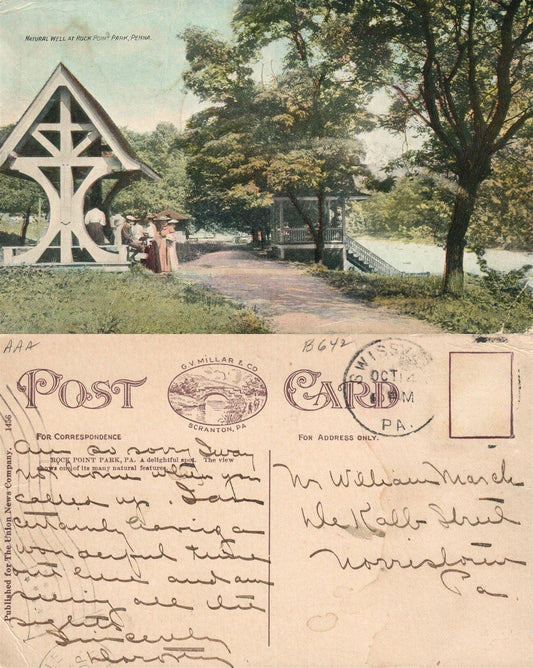 NATURAL WELL AT ROCK POINT PARK, PENNA.
AAA
B642
POST CARD
G.V. MILLAR & CO.
SCRANTON, PA
SWISS
OCT 14
PM
PA.
FOR CORRESPONDENCE
FOR ADDRESS ONLY.
ROCK POINT PARK, PA. A delightful spot. The view
shows one of its many natural features.
Published for The Union News Company. 1456
Am so sorry I was
not home when you
called up. I am
certainly having a
wonderful time
out here and am
seeing all the
sights.
Sincerely
Dorothy
Mr William March
De Kalb Street
Norristown
Pa.